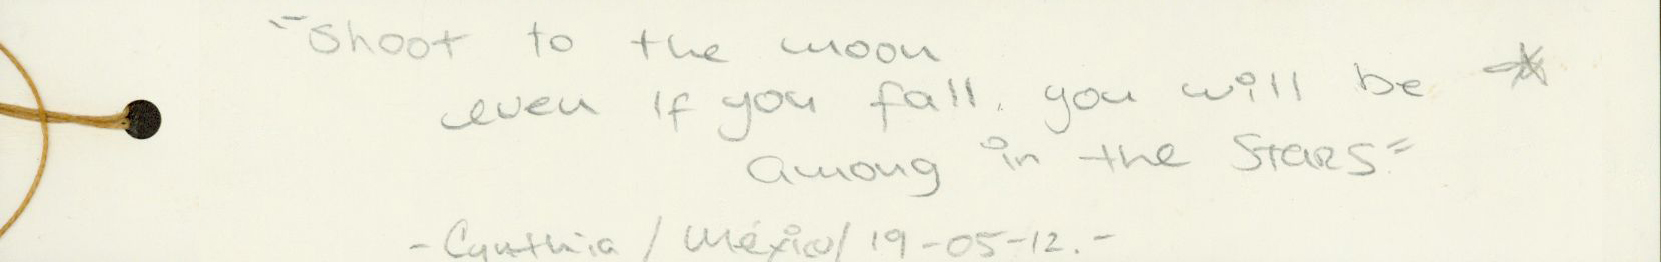 "Shoot to the moon
even if you fall, you will be
among in the Stars"
- Cynthia / México / 19-05-12.-